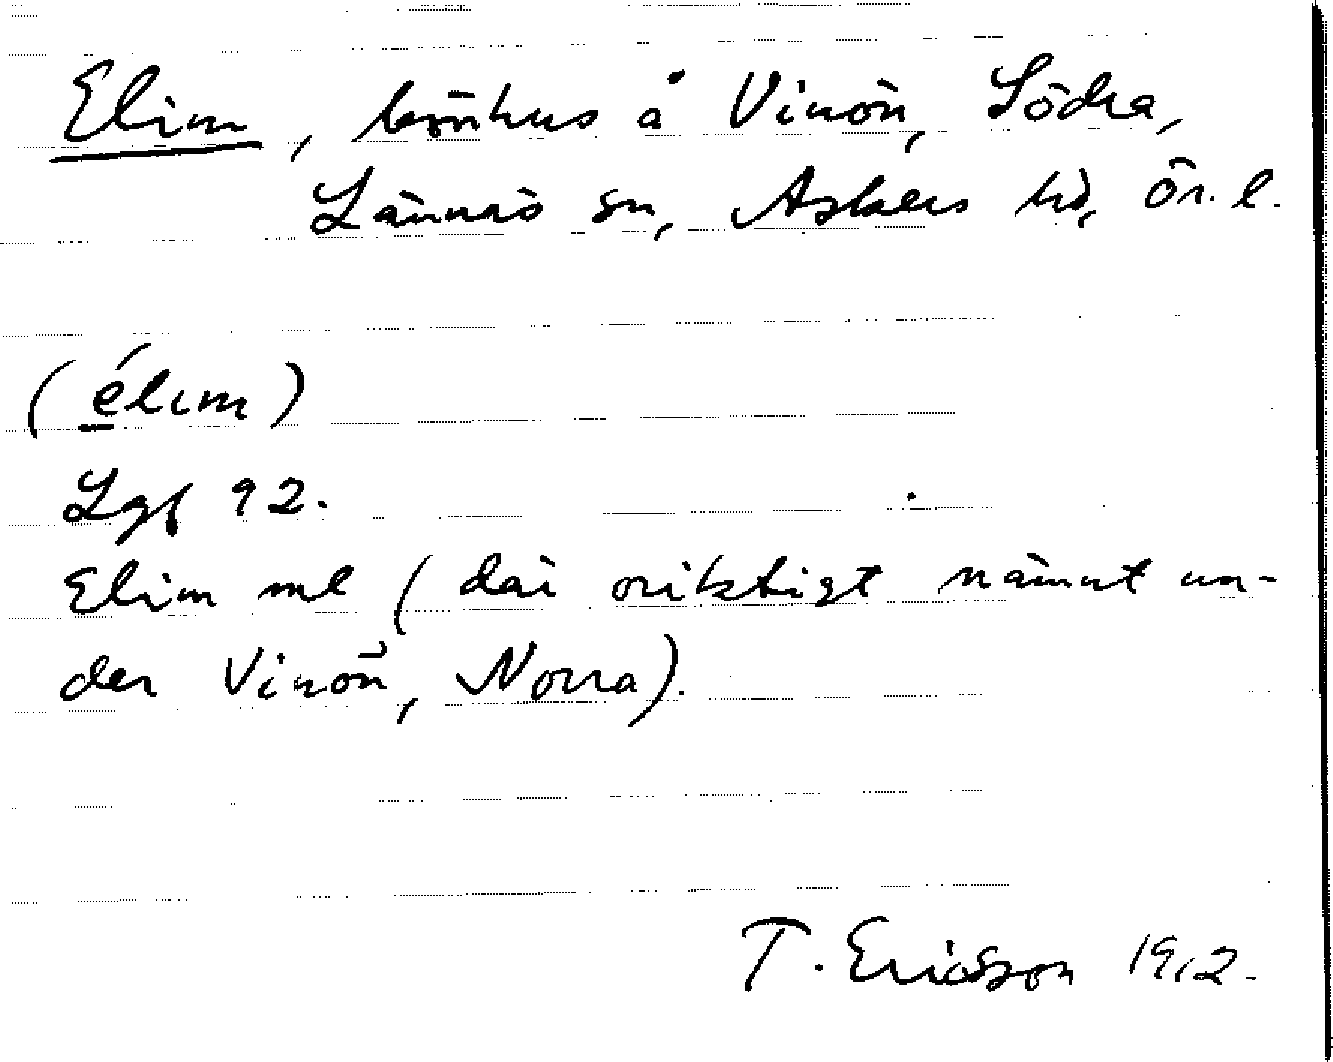 Elim, bönhus å Vinön, Södra,
Lännäs sn, Askers hd, Ör. l.
(élım)
Lgf 92.
Elim ml (där oriktigt nämnt un-
der Vinön, Norra).
T. Ericsson 1912.